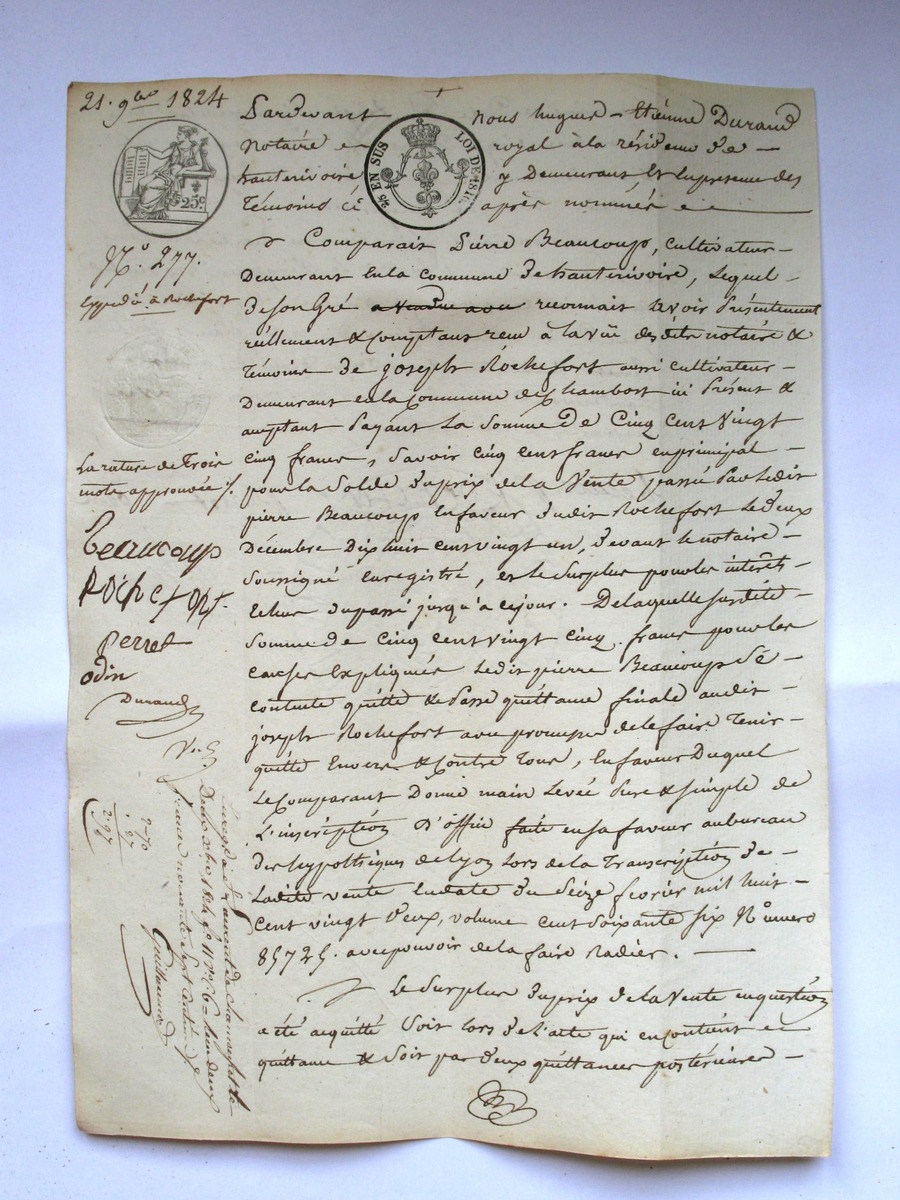 21. 9bre 1824
25 EN SUS LOI DE 1816
25c
Pardevant nous hugues - thiénne Durand
Notaire royal à la résidence de -
hauterivoire y Demeurant et En presence des
Témoins ci après nommés
Comparait Pierre Beaucoup, cultivateur -
Demeurant En la commune de hauterivoire, Lequel -
De son Gré a vendu avec reconnait avoir Présentement
réellement & comptant recu à la vüe des dits notaire &
Témoins De joseph Rochefort aussi cultivateur -
Demeurant en la Commune de Chambost ici Présent &
acceptant Payant La Somme De Cinq Cent Vingt
Cinq francs, Savoir cinq cent francs en principal -
pour La Solde du prix de la Vente passé Par Ledit
pierre Beaucoup En faveur dudit Rochefort Le deux
Décembre Dix huit cent vingt un, devant le notaire -
Soussigné Enregistré, et le Surplus pour les intérêts
Echus du passé jusqu'à ce jour. De laquelle Susdite
Somme De Cinq Cent Vingt Cinq francs pour les
causes Expliquées Ledit pierre Beaucoup Se -
contente quitte & Passe quittance finale audit -
joseph Rochefort avec promesse de le faire Tenir -
quitte Envers & Contre Tous, En faveur Duquel
Le Comparant Donne main Levée Pure & Simple de
L'inscription D'office faite en sa faveur au bureau
Des hypothèques de Lyon Lors de la Transcription de -
Ladite vente En date du Seize fevrier mil huit -
Cent vingt Deux, volume cent soixante six Numero
avec pouvoir de la faire Radier. -
Le Surplus du prix de la Vente en question
a été acquitté Soit Lors de L'acte qui en contient
quittance & Soit par deux quittances postérieures -
No. 277.
Expedié à Rochefort
La rature de Trois
mots approuvée
Beaucoup
Rochefort.
perret
odin
Durand
2-70
. 27
2-97
Enregistré à St Laurent de Chamousset le
Deux Xbre 1824
francs nonante Sept Centimes